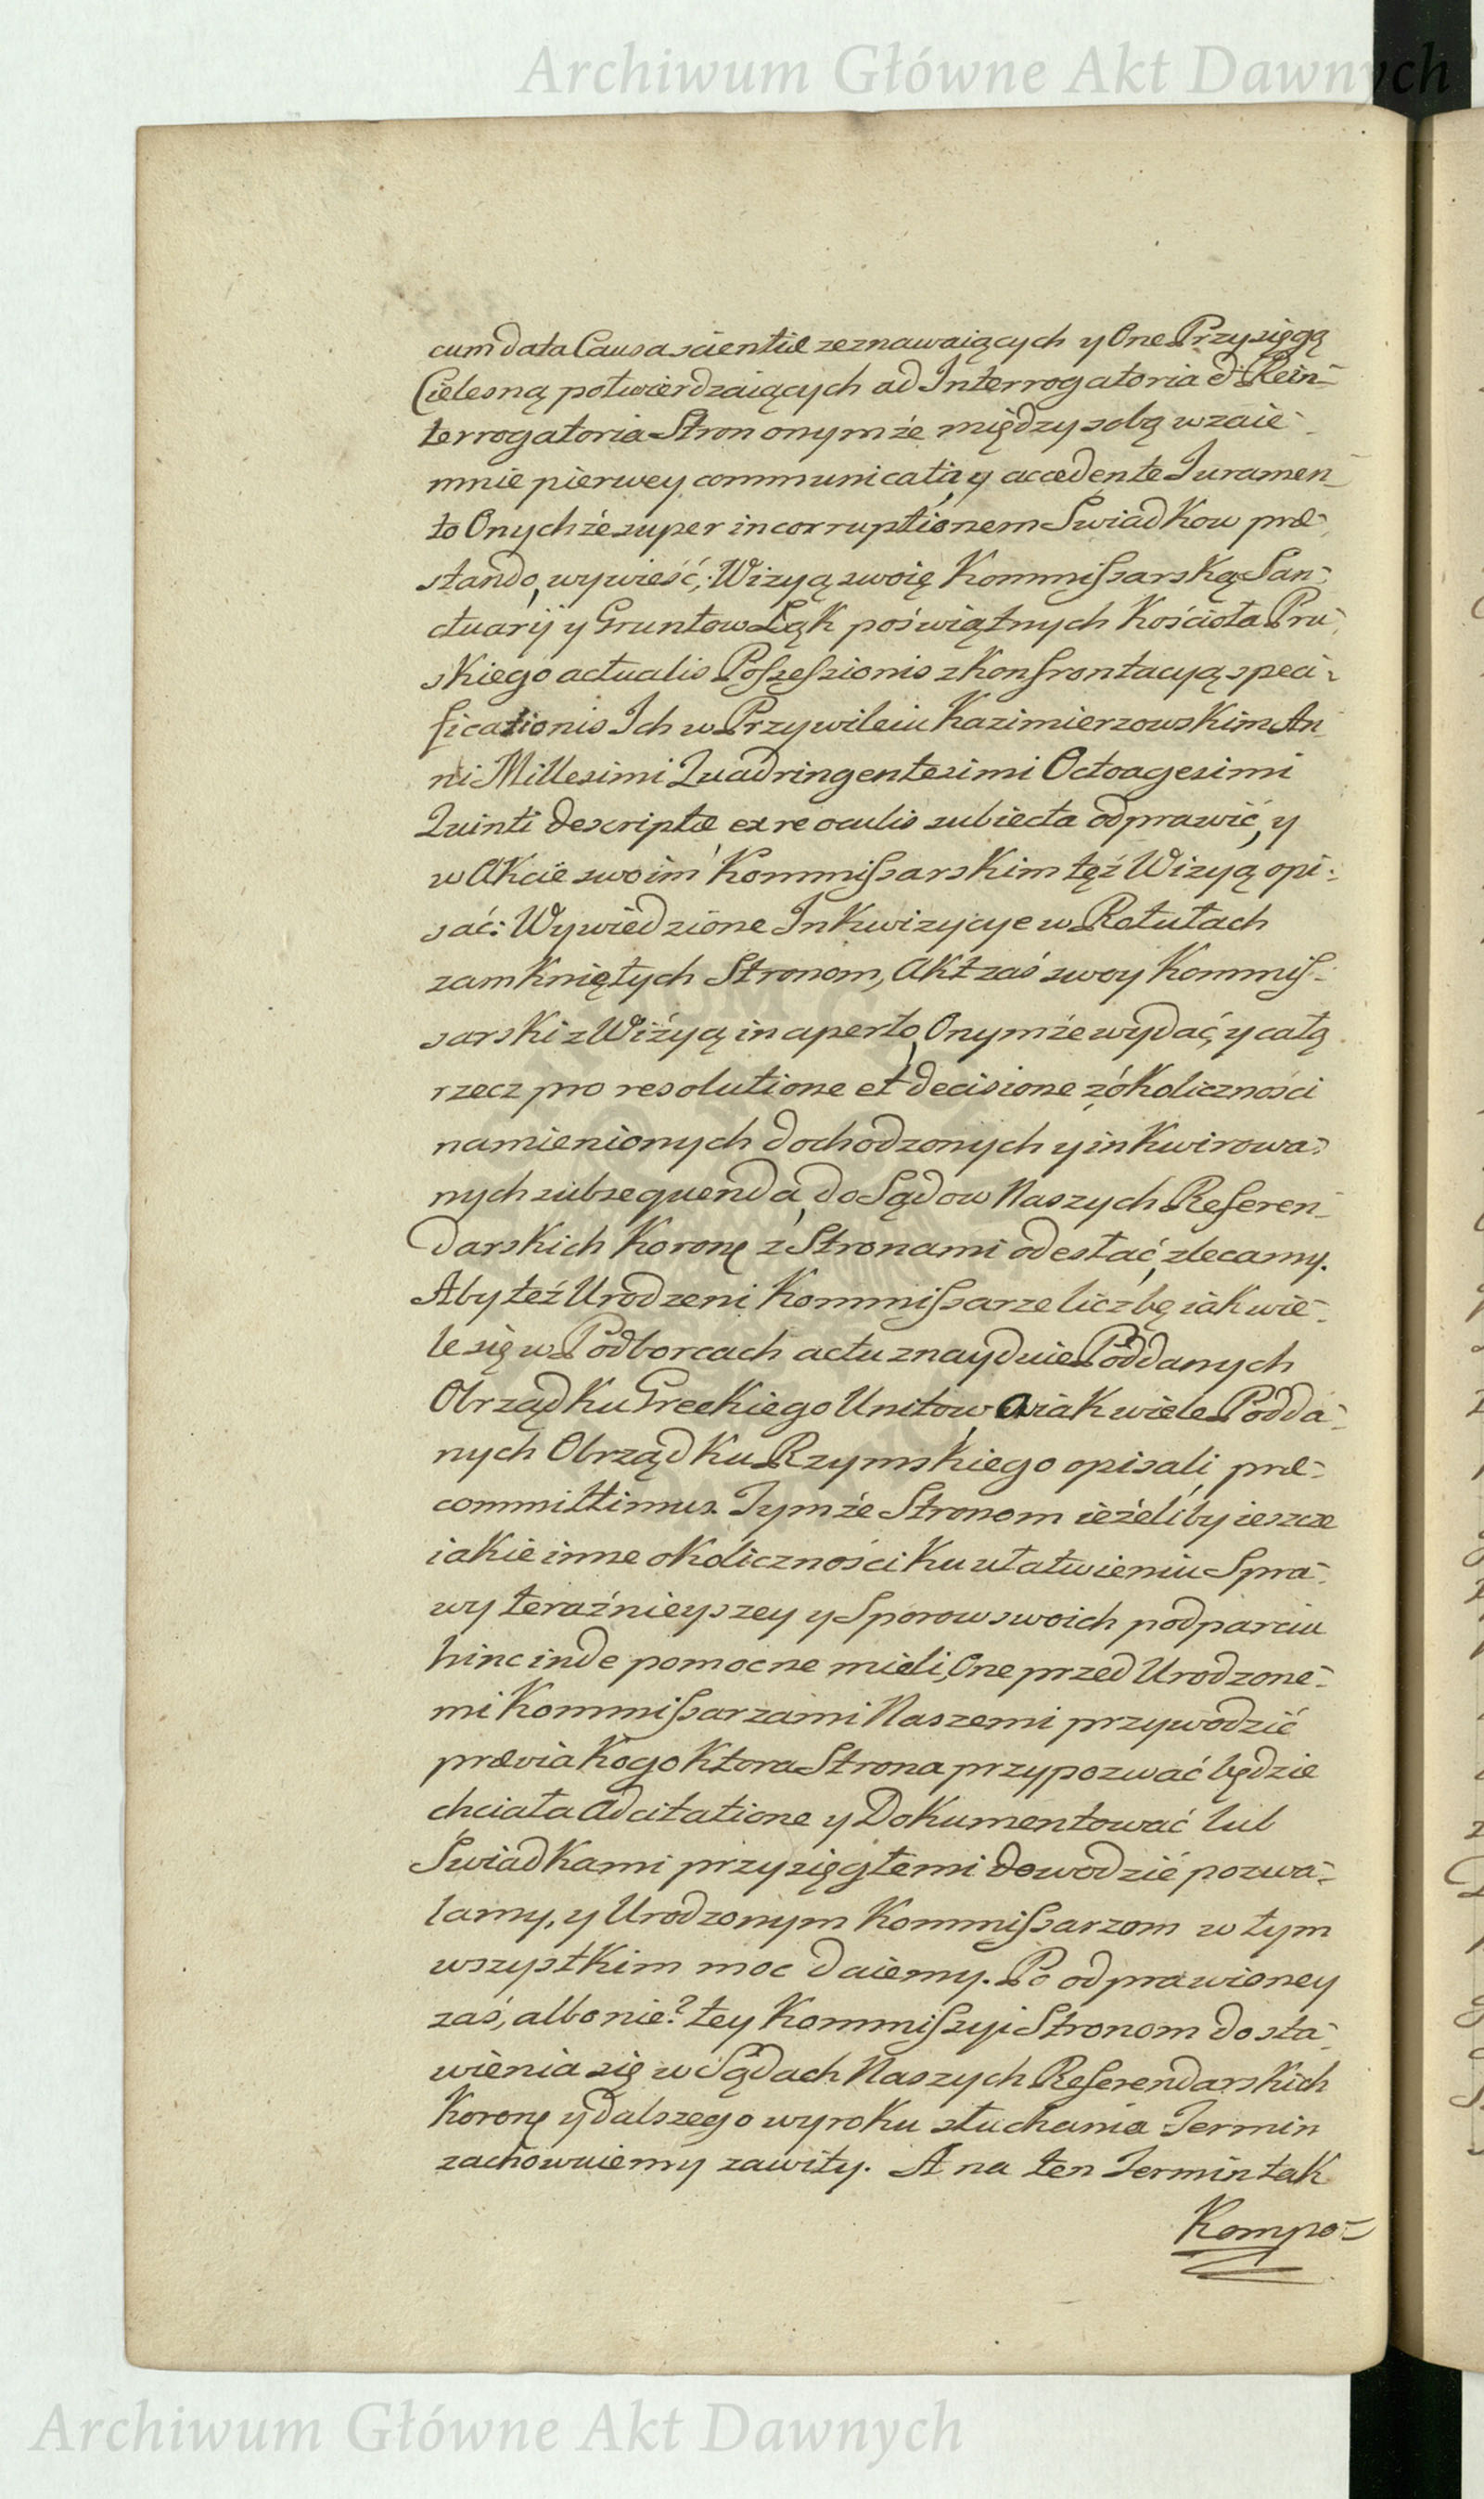 Archiwum Główne Akt Dawnych
cum data Causa scientiæ zeznawaiących y One Przysięgą
Cielesną potwierdzaiących ad Interrogatoria et Rein-
terrogatoria Stron onymże między sobą wzaie-
mnie pierwey communicatia, y accedente Iuramen-
to Onychże super incorruptionem Swiadkow præ-
stando, wywieść; Wizyą swoię Kommissarską San-
ctuarij y Gruntow Łąk poświątnych Kościoła Pru-
skiego actualis Possessionis z konfrontacyą speci-
ficationis Ich w Przywileiu Kazimierzowskim An-
ni Millesimi Quadringentesimi Octoagesimi
Quinti descriptæ ex re oculis subiecta odprawić, y
w Akcie swoim Kommissarskim tęż Wizyą opi-
sać: Wywiedzione Inkwizycye w Rotułach
zamkniętych Stronom, Akt zaś swoy Kommis-
sarski z Wizyą in aperto Onymże wydać, y całą
rzecz pro resolutione et decisione z okoliczności
namienionych dochodzonych y inkwirowa-
nych subsequenda, do Sądow Naszych Referen-
darskich Koronę z Stronami odesłać, zlecamy.
Aby też Urodzeni Kommissarze liczbę iak wie-
le się w Podborcach actu znayduie Poddanych
Obrządku Greckiego Unitow, a iak wiele Podda-
nych Obrządku Rzymskiego opisali, præ-
committimus. Tymże Stronom ieżeliby ieszcze
iakie inne okoliczności ku ułatwieniu Spra-
wy teraźnieyszey y Sporow swoich podparciu
hinc inde pomocne mieli, One przed Urodzone-
mi Kommissarzami Naszemi przywodzić
prævia kogo ktora Strona przypozwać będzie
chciała Adcitatione y Dokumentować lub
Swiadkami przysięgłemi dowodzić pozwa-
lamy, y Urodzonym Kommissarzom w tym
wszystkim moc daiemy. Po odprawioney
zaś, albo nie? tey Kommissyi Stronom do sta-
wienia się w Sądach Naszych Referendarskich
Koronę y dalszego wyroku słuchania Termin
zachowuiemy zawity. A na ten Termin tak
Kompo-
Archiwum Główne Akt Dawnych